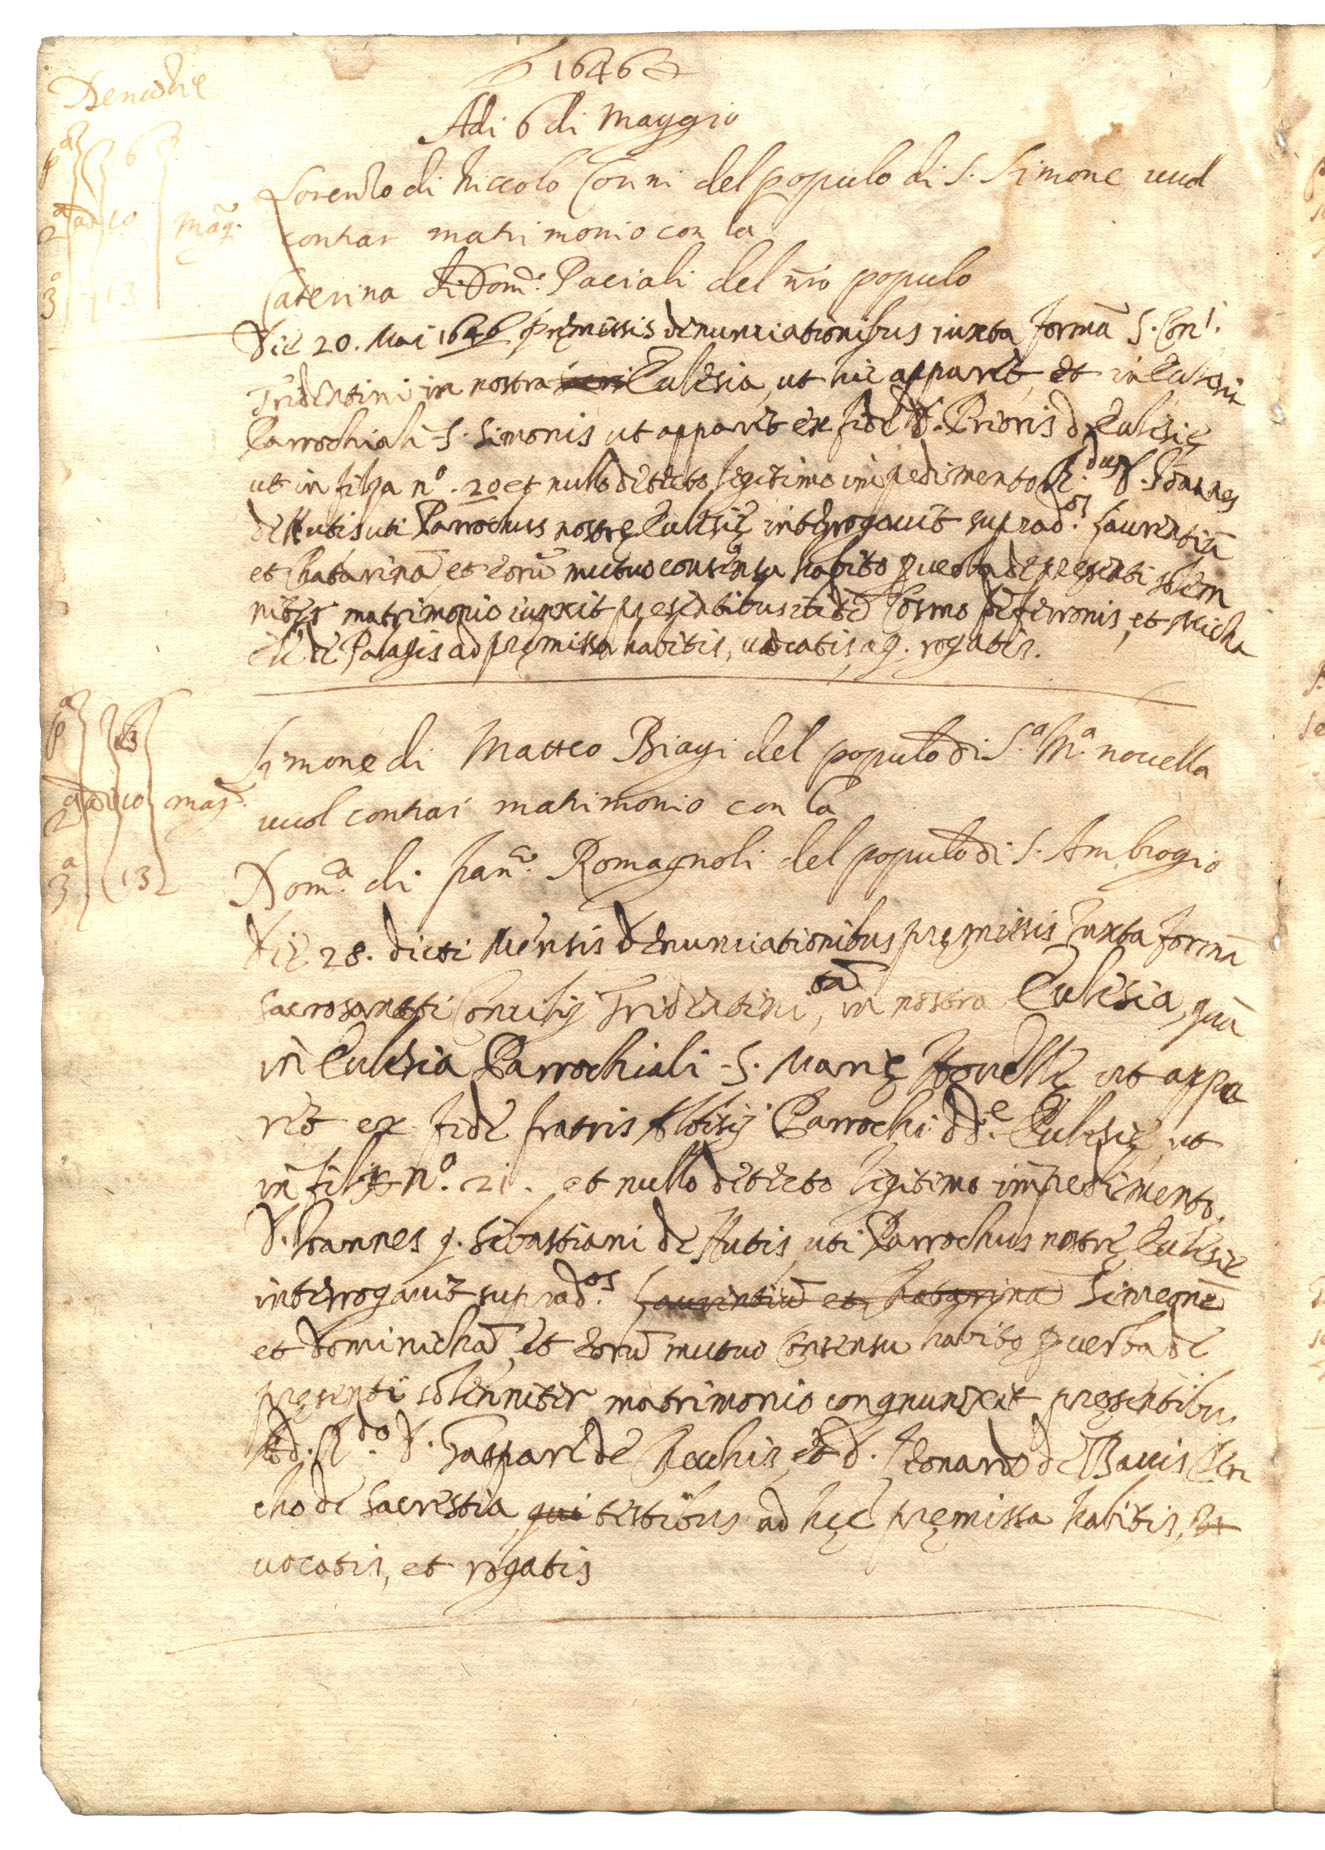 1646
Denũtie
Adi 6 di Maggio
p.ª 6
2ª adi 10 Mag.
3ª 13
Lorenzo di Niccolo Conni del populo di S. Simone vuol
contrar matrimonio con la
Caterina di Dom.º Paciali del nr̃o populo
Die 20. Mai 1646 pręmissis denunciationibus iuxta formã S. Con.
Tridentini in nostra Eclesia, ut hic apparet, et in Eclesia
Parrochiali S. Simonis ut apparet ex fide D. Prioris d. Eclesię
ut in filza nº. 20 et nullo detecto legitimo impedimento R.dus D. Joannes
de Nutis uti Parrochus nostrę Eclesię interrogauit suprad.os Laurentiũ
et Chatarinã et eorũ mutuo consensu habito p uerba de presenti solem
niter matrimonio iunxit presentibus ibidẽ Cosmo de ferronis, et Micha
ele de Palagis ad pręmissa habitis, uocatis, ac q. rogatis.
p.ª 6
2ª adi 10 mag.
3ª 13
Simone di Matteo Biagi del populo di S.ª M.ª nouella
vuol contrar matrimonio con la
Dom.ª di fran.co Romagnoli del populo di S. Ambrogio
Die 28. dicti Mensis denunciationibus pręmissis Iuxta formã
sacrosancti Concilij Tridentini, tã in nostra Eclesia, quã
in Eclesia Parrochiali S. Marię Nouellę ut appa
ret ex fide fratris Aloisij Parrochi dd.e Eclesię, ut
in filza nº. 21. et nullo detecto legitimo impedimento
D. Ioannes q. Sebastiani de Nutis, uti Parrochus nostrę Eclesię
interrogauit suprad.os Laurentiũ et Chatarinã Simeonẽ
et Dominichã, et eorũ mutuo Consensu habito p uerba de
pręsenti solenniter matrimonio congnunxit pręsentibus
Ad. R.do D. Gaspare de Cecchis, et d. Leonardo de Baccis Cleri
cho de Sacrestia, qui testibus ad hęc pręmissa habitis, et
uocatis, et rogatis